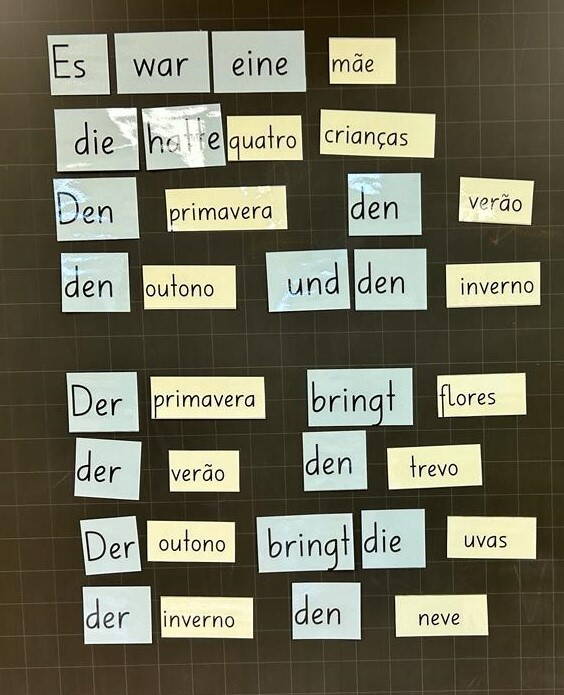 Es war eine mãe
die hatte quatro crianças
Den primavera den verão
den outono und den inverno
Der primavera bringt flores
der verão den trevo
Der outono bringt die uvas
der inverno den neve